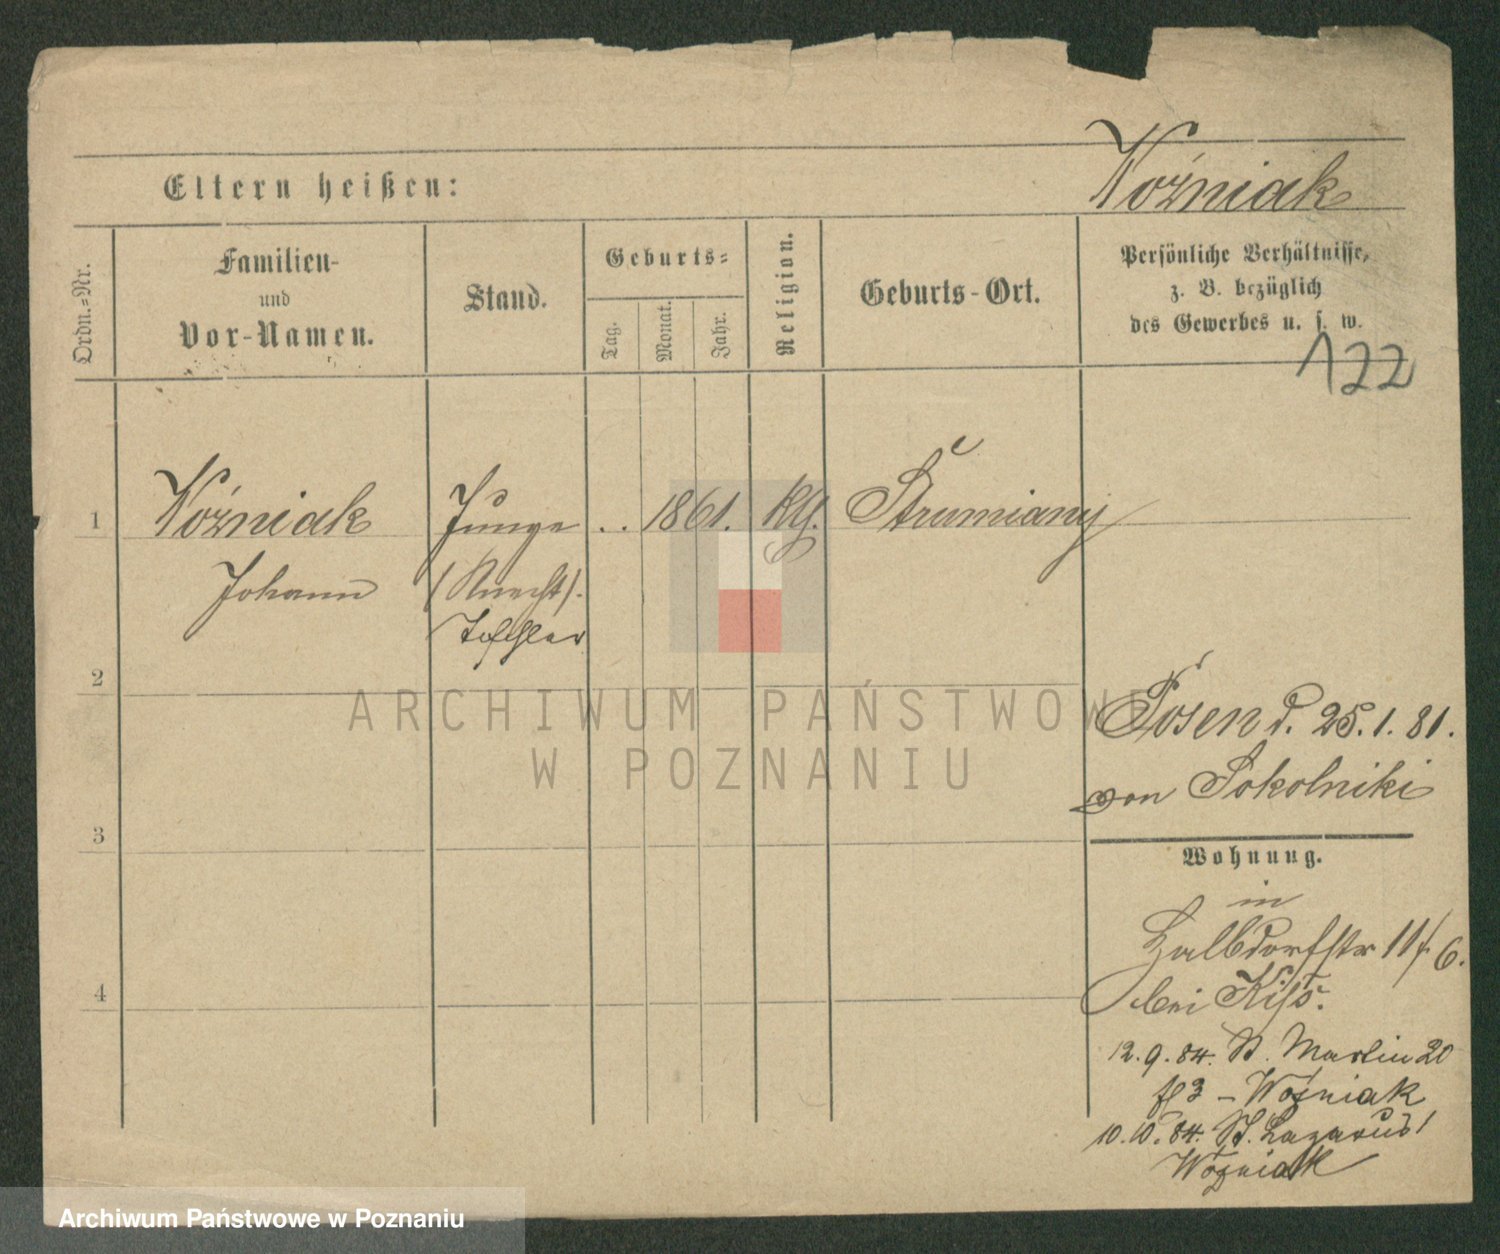 Woźniak
Eltern heißen:
Ordn.=Nr.
Familien-
und
Vor-Namen.
Stand.
Geburts=
Tag.
Monat.
Jahr.
Religion.
Geburts-Ort.
Persönliche Verhältnisse,
z. B. bezüglich
des Gewerbes u. s. w.
122
1
Woźniak Junge .. 1861. Kth. Strumiany
Johann (Knecht).
Tischler
2
Posen d. 25.1.81.
von Sokolniki
3
Wohnung.
in
Halbdorfstr 11/6.
bei Kiss.
4
12.9.84. St. Martin 20
3 - Woźniak
10.10.84. St. Lazarus 1
Woźniak
ARCHIWUM PAŃSTWOWE
W POZNANIU
Archiwum Państwowe w Poznaniu